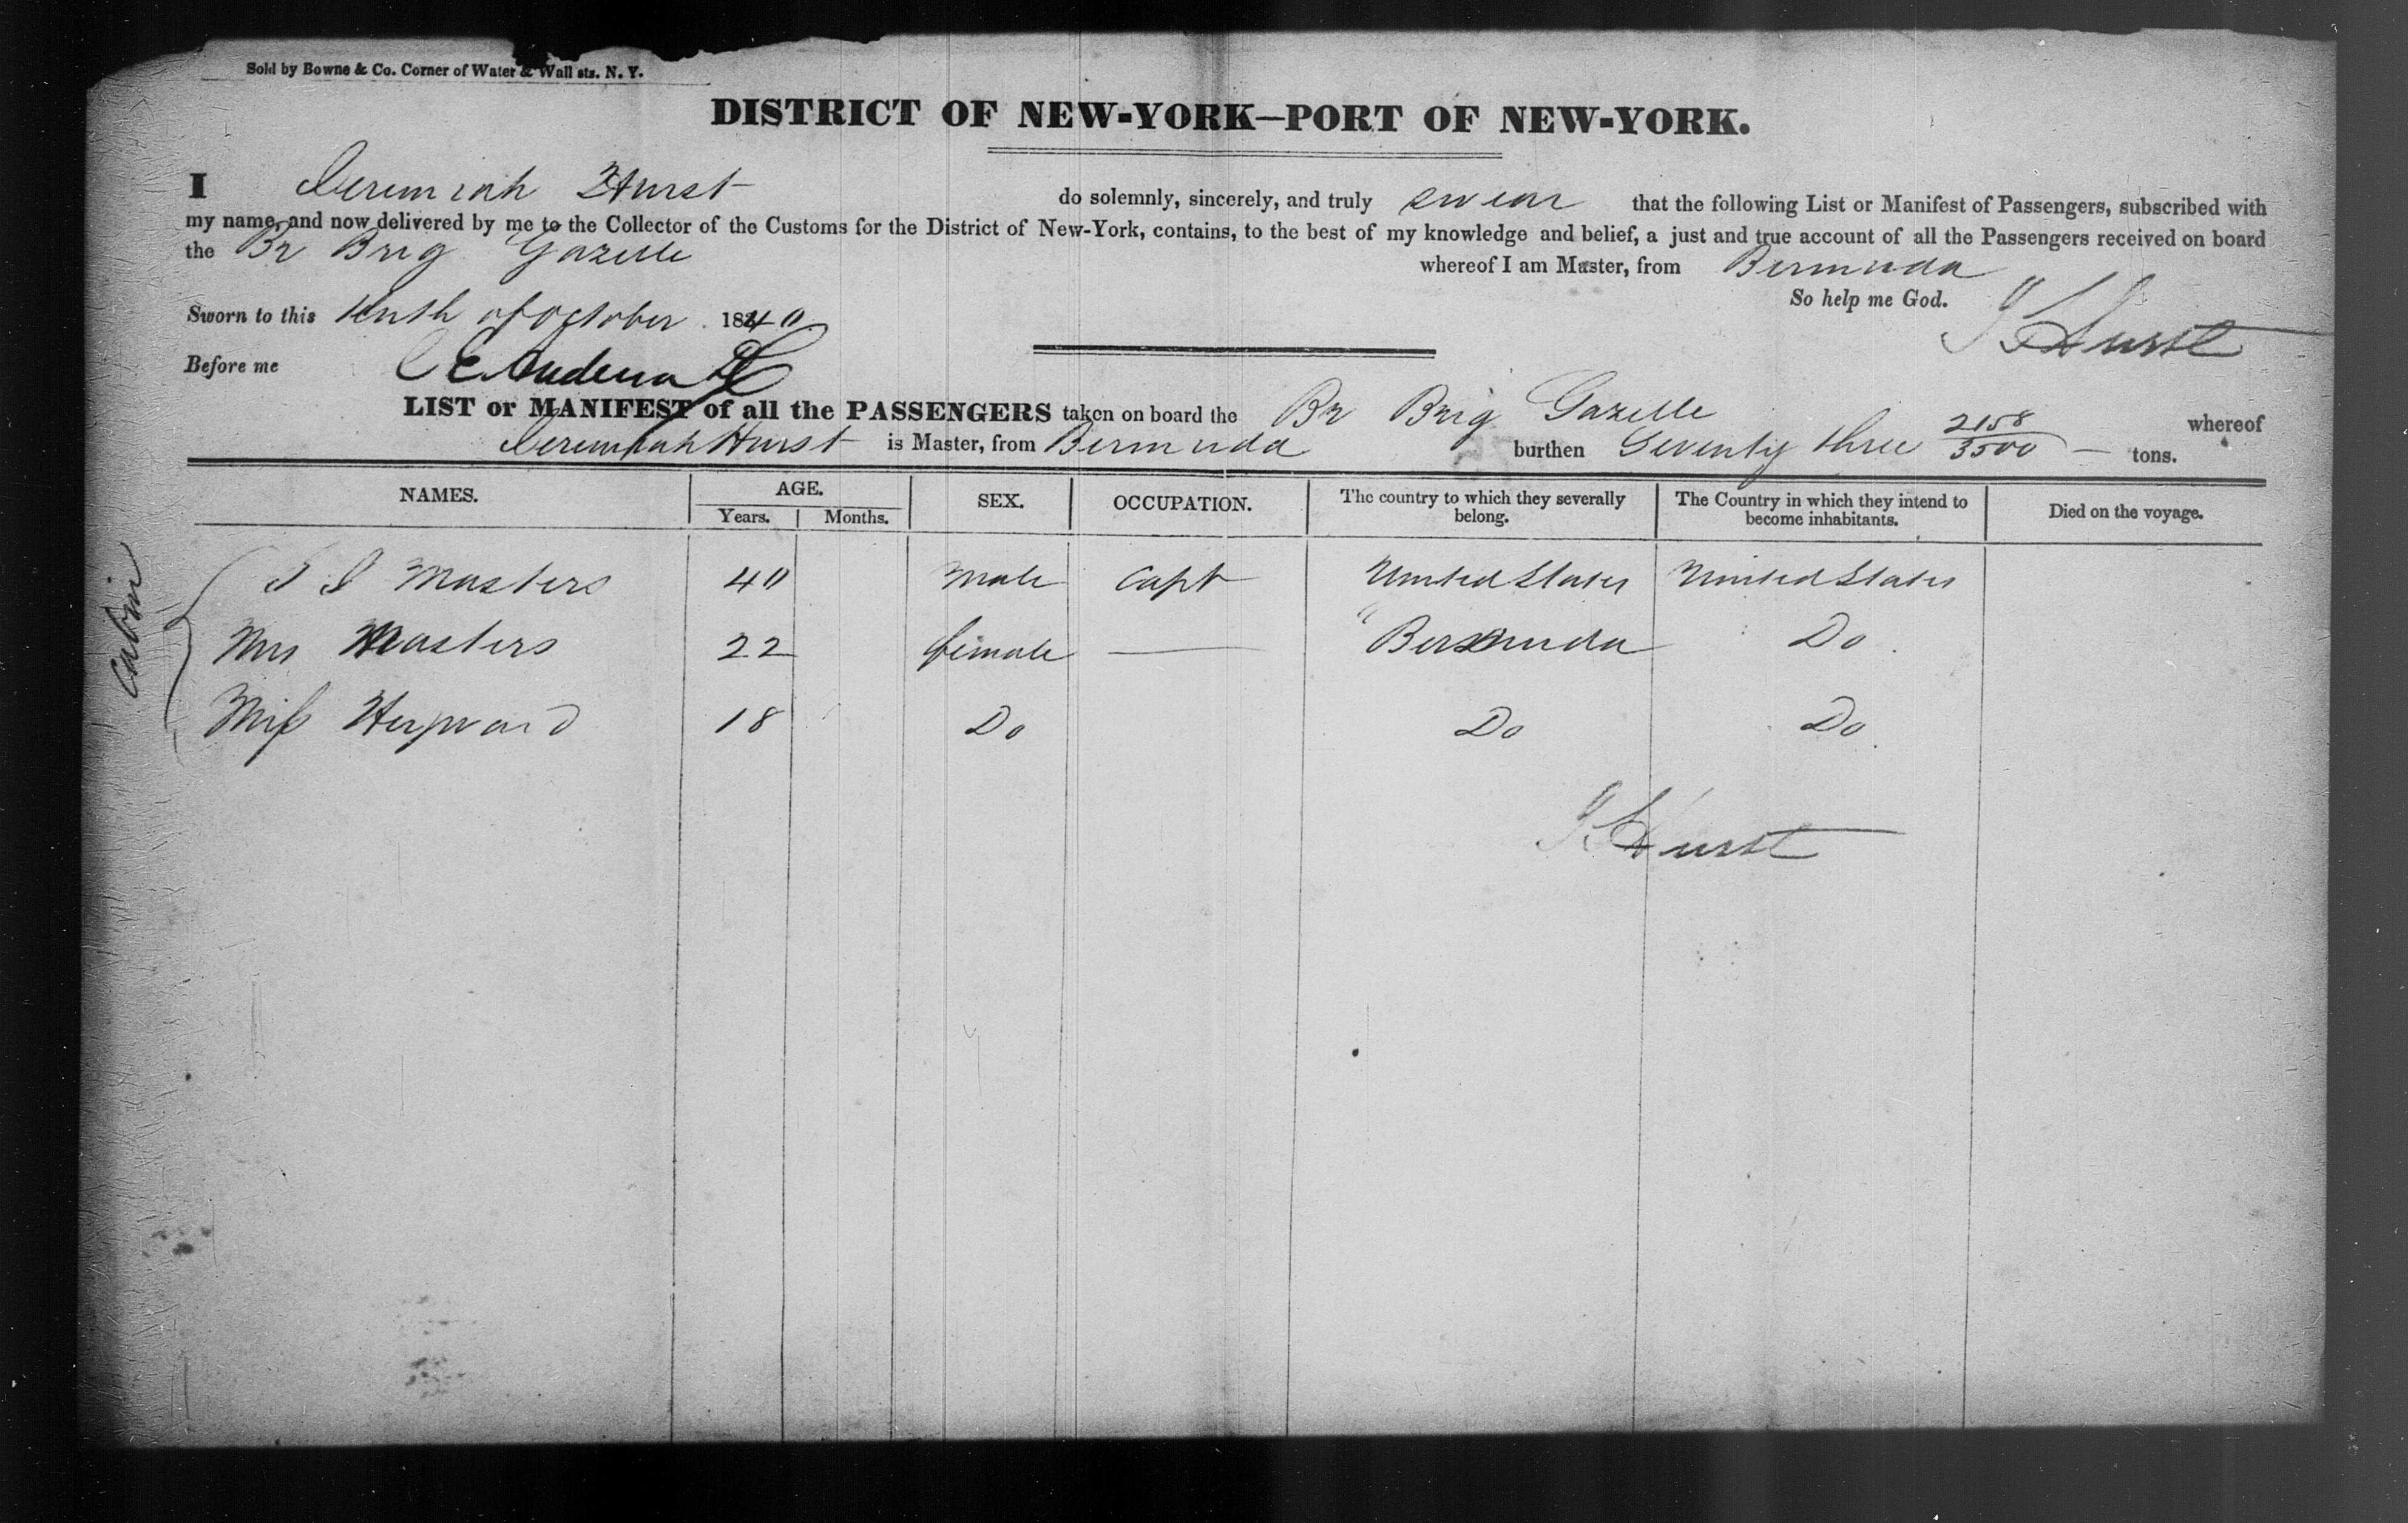 Sold by Bowne & Co. Corner of Water & Wall sts. N. Y.
DISTRICT OF NEW-YORK—PORT OF NEW-YORK.
I Jeremiah Hurst do solemnly, sincerely, and truly swear that the following List or Manifest of Passengers, subscribed with
my name, and now delivered by me to the Collector of the Customs for the District of New-York, contains, to the best of my knowledge and belief, a just and true account of all the Passengers received on board
the Br Brig Gazelle whereof I am Master, from Bermuda
So help me God.
Sworn to this tenth of October 1840
J Hurst
Before me
LIST or MANIFEST of all the PASSENGERS taken on board the Br Brig Gazelle whereof
Jeremiah Hurst is Master, from Bermuda burthen Seventy three 2158/3500 — tons.
NAMES. AGE. SEX. OCCUPATION. The country to which they severally belong. The Country in which they intend to become inhabitants. Died on the voyage.
Years. Months.
Cabin
Masters 40 Male Capt United States United States
Mrs Masters 22 female — " Bermuda Do
Miss Hayward 18 Do Do Do
J Hurst